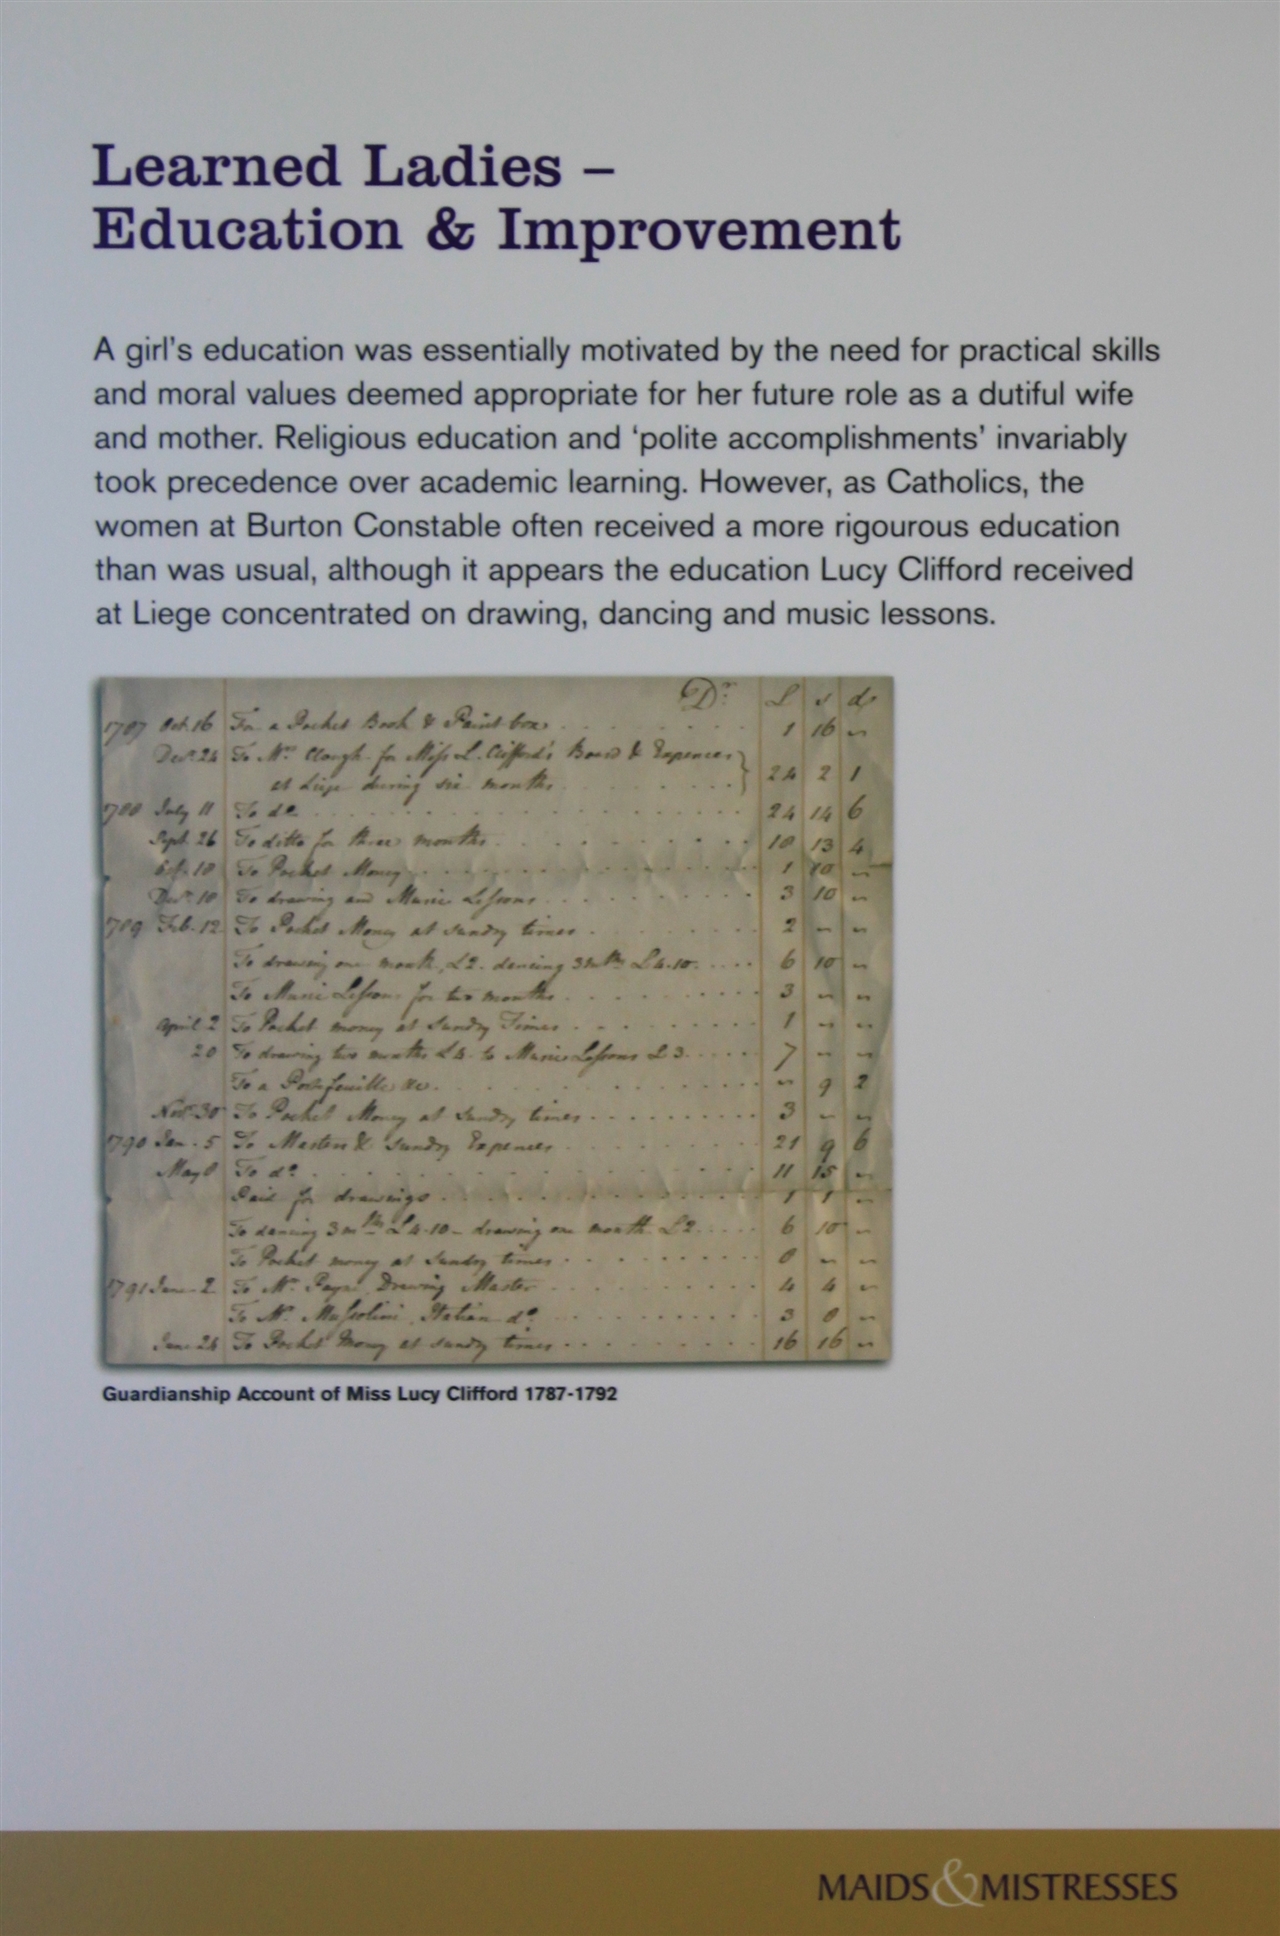 Learned Ladies –
Education & Improvement
A girl's education was essentially motivated by the need for practical skills
and moral values deemed appropriate for her future role as a dutiful wife
and mother. Religious education and 'polite accomplishments' invariably
took precedence over academic learning. However, as Catholics, the
women at Burton Constable often received a more rigourous education
than was usual, although it appears the education Lucy Clifford received
at Liege concentrated on drawing, dancing and music lessons.
Dr £ s d
1787 Oct. 16 For a Pocket Book & Paint box 1 16 ~
Decr. 24 To Mrs Clough for Miss L. Clifford's Board & Expences
at Liege during six months 24 2 1
1788 July 11 To do 24 14 6
Sept. 26 To ditto for three months 18 13 4
To Pocket Money 1 10 ~
Decr. 18 To drawing and Music Lessons 3 10 ~
1789 Feb. 12 To Pocket Money at sundry times 2 ~ ~
To drawing one month, £2. dancing 3 mths £4.10. 6 10 ~
To Music Lessons for two months 3 ~ ~
April 2 To Pocket money at Sundry Times 1 ~ ~
20 To drawing two months £4. to Music Lessons £3 7 ~ ~
To a Portefeuille &c. ~ 9 2
Novr. 30 To Pocket Money at Sundry times 3 ~ ~
1790 Jan. 5 To Masters & Sundry Expences 21 9 6
May 8 To do 11 15 ~
Paid for drawings 1 1 ~
To dancing 3 mths £4.10 – drawing one month £2 6 10 ~
To Pocket money at sundry times 8 ~ ~
1791 June 2 To Mr. Drawing Master 4 4 ~
To Mr. Italian do 3 8 ~
June 24 To Pocket Money at sundry times 16 16 ~
Guardianship Account of Miss Lucy Clifford 1787-1792
MAIDS & MISTRESSES